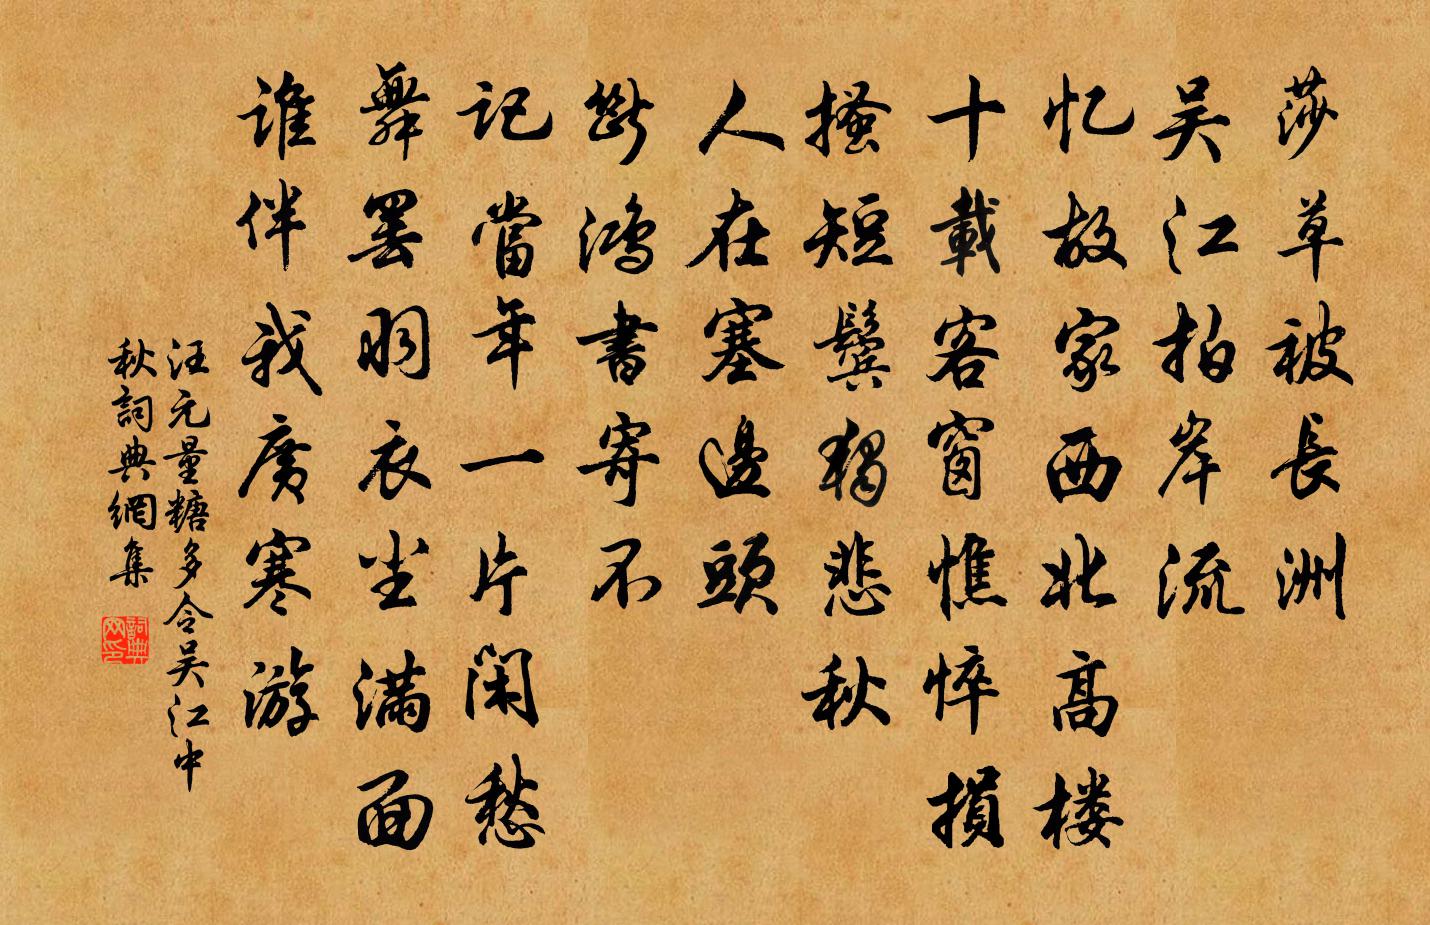 莎草被長洲
吴江拍岸流
忆故家西北高楼
十載客窗憔悴損
搔短鬓獨悲秋
人在塞邊頭
斷鴻書寄不
记當年一片闲愁
舞罢羽衣尘满面
谁伴我廣寒游
汪元量糖多令吴江中
秋詞典網集
詞典网印